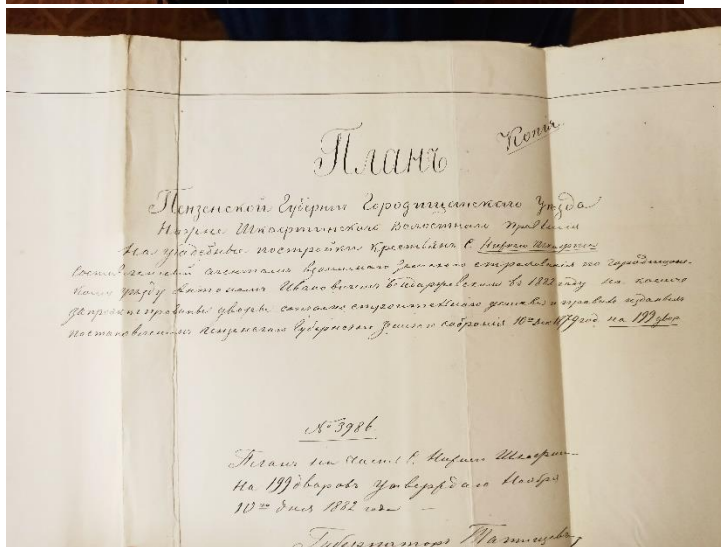 Копія
Планъ
Пензенской Губерніи Городищенскаго Уѣзда
Шкафтинскаго Волостнаго Правленія
На усадебныя постройки крестьянъ С.
составленный агентомъ взаимнаго земскаго страхованія по Городищенс-
кому уѣзду Антономъ Ивановичемъ въ 1882 году на коемъ
дворы согласно строительнаго устава и правилъ изданныхъ
постановленіемъ Пензенскаго Губернскаго Земскаго собранія 10го 1879 год на 199 двор
№ 3986
Планъ на часть С.
На 199 дворовъ Утверждаю Ноября
10го дня 1882 года
Губернаторъ Татищевъ